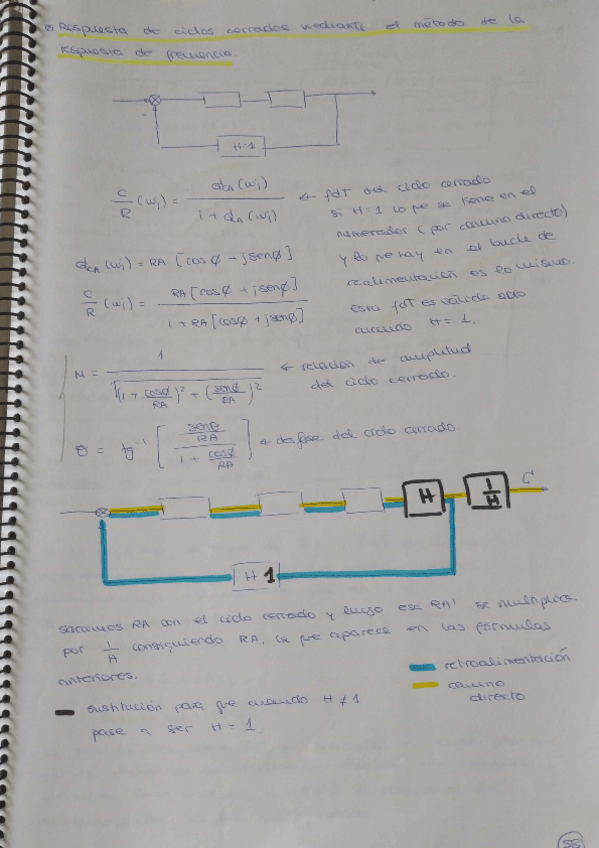 Respuesta de ciclos cerrados mediante el método de la
respuesta de frecuencia.
-
H=1
C/R (wi) = GCA(wi) / 1 + GCA(wi) ← fdT del ciclo cerrado
si H=1 lo que se tiene en el
numerador (por camino directo)
y lo que hay en el bucle de
realimentación es lo mismo.
esta fdT es válida solo
cuando H = 1.
GCA(wi) = RA [cosø + jsenø]
C/R (wi) = RA[cosø + jsenø] / 1 + RA[cosø + jsenø]
M = 1 / √(1 + cosø/RA)² + (senø/RA)² ← relación de amplitud
del ciclo cerrado.
θ = tg⁻¹ [ senø/RA / 1 + cosø/RA ] ← desfase del ciclo cerrado.
H
1/H
C
H 1
sacamos RA con el ciclo cerrado y luego esa RA' se multiplica
por 1/H consiguiendo RA, la que aparece en las fórmulas
anteriores.
retroalimentación
camino
directo
sustitución para que cuando H ≠ 1
pase a ser H = 1.